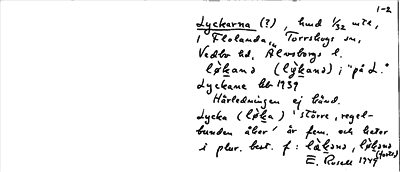 1-2
Lyckarna (?), hmd 1/32 mtl,
i Flolanda, Torrskogs sn,
Vedbo hd, Älvsborgs l.
løkanə (lýkanə) i "på L."
Lyckane hbr 1939
Härledningen ej känd.
Lycka (løka) 'större, regel-
bunden åker' är fem. och heter
i plur. best. f: løkənə, løkənə
E. Rosell 1949